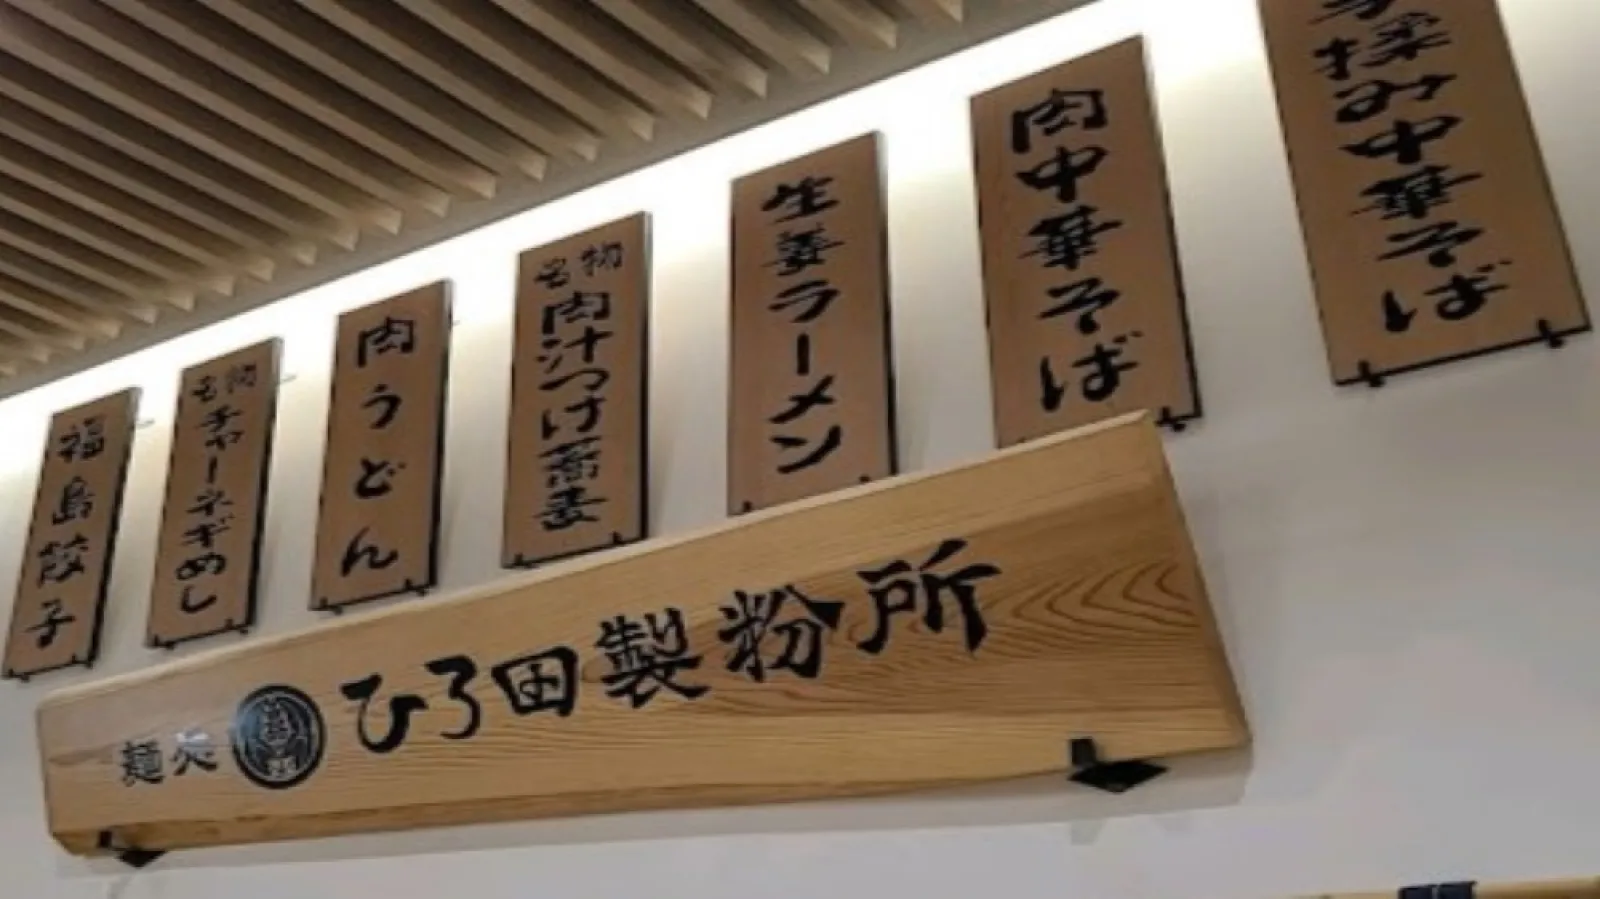 手揉み中華そば
肉中華そば
生姜ラーメン
名物
肉汁つけ蕎麦
肉うどん
名物
チャーネギめし
福島餃子
麺処
ひろ田製粉所